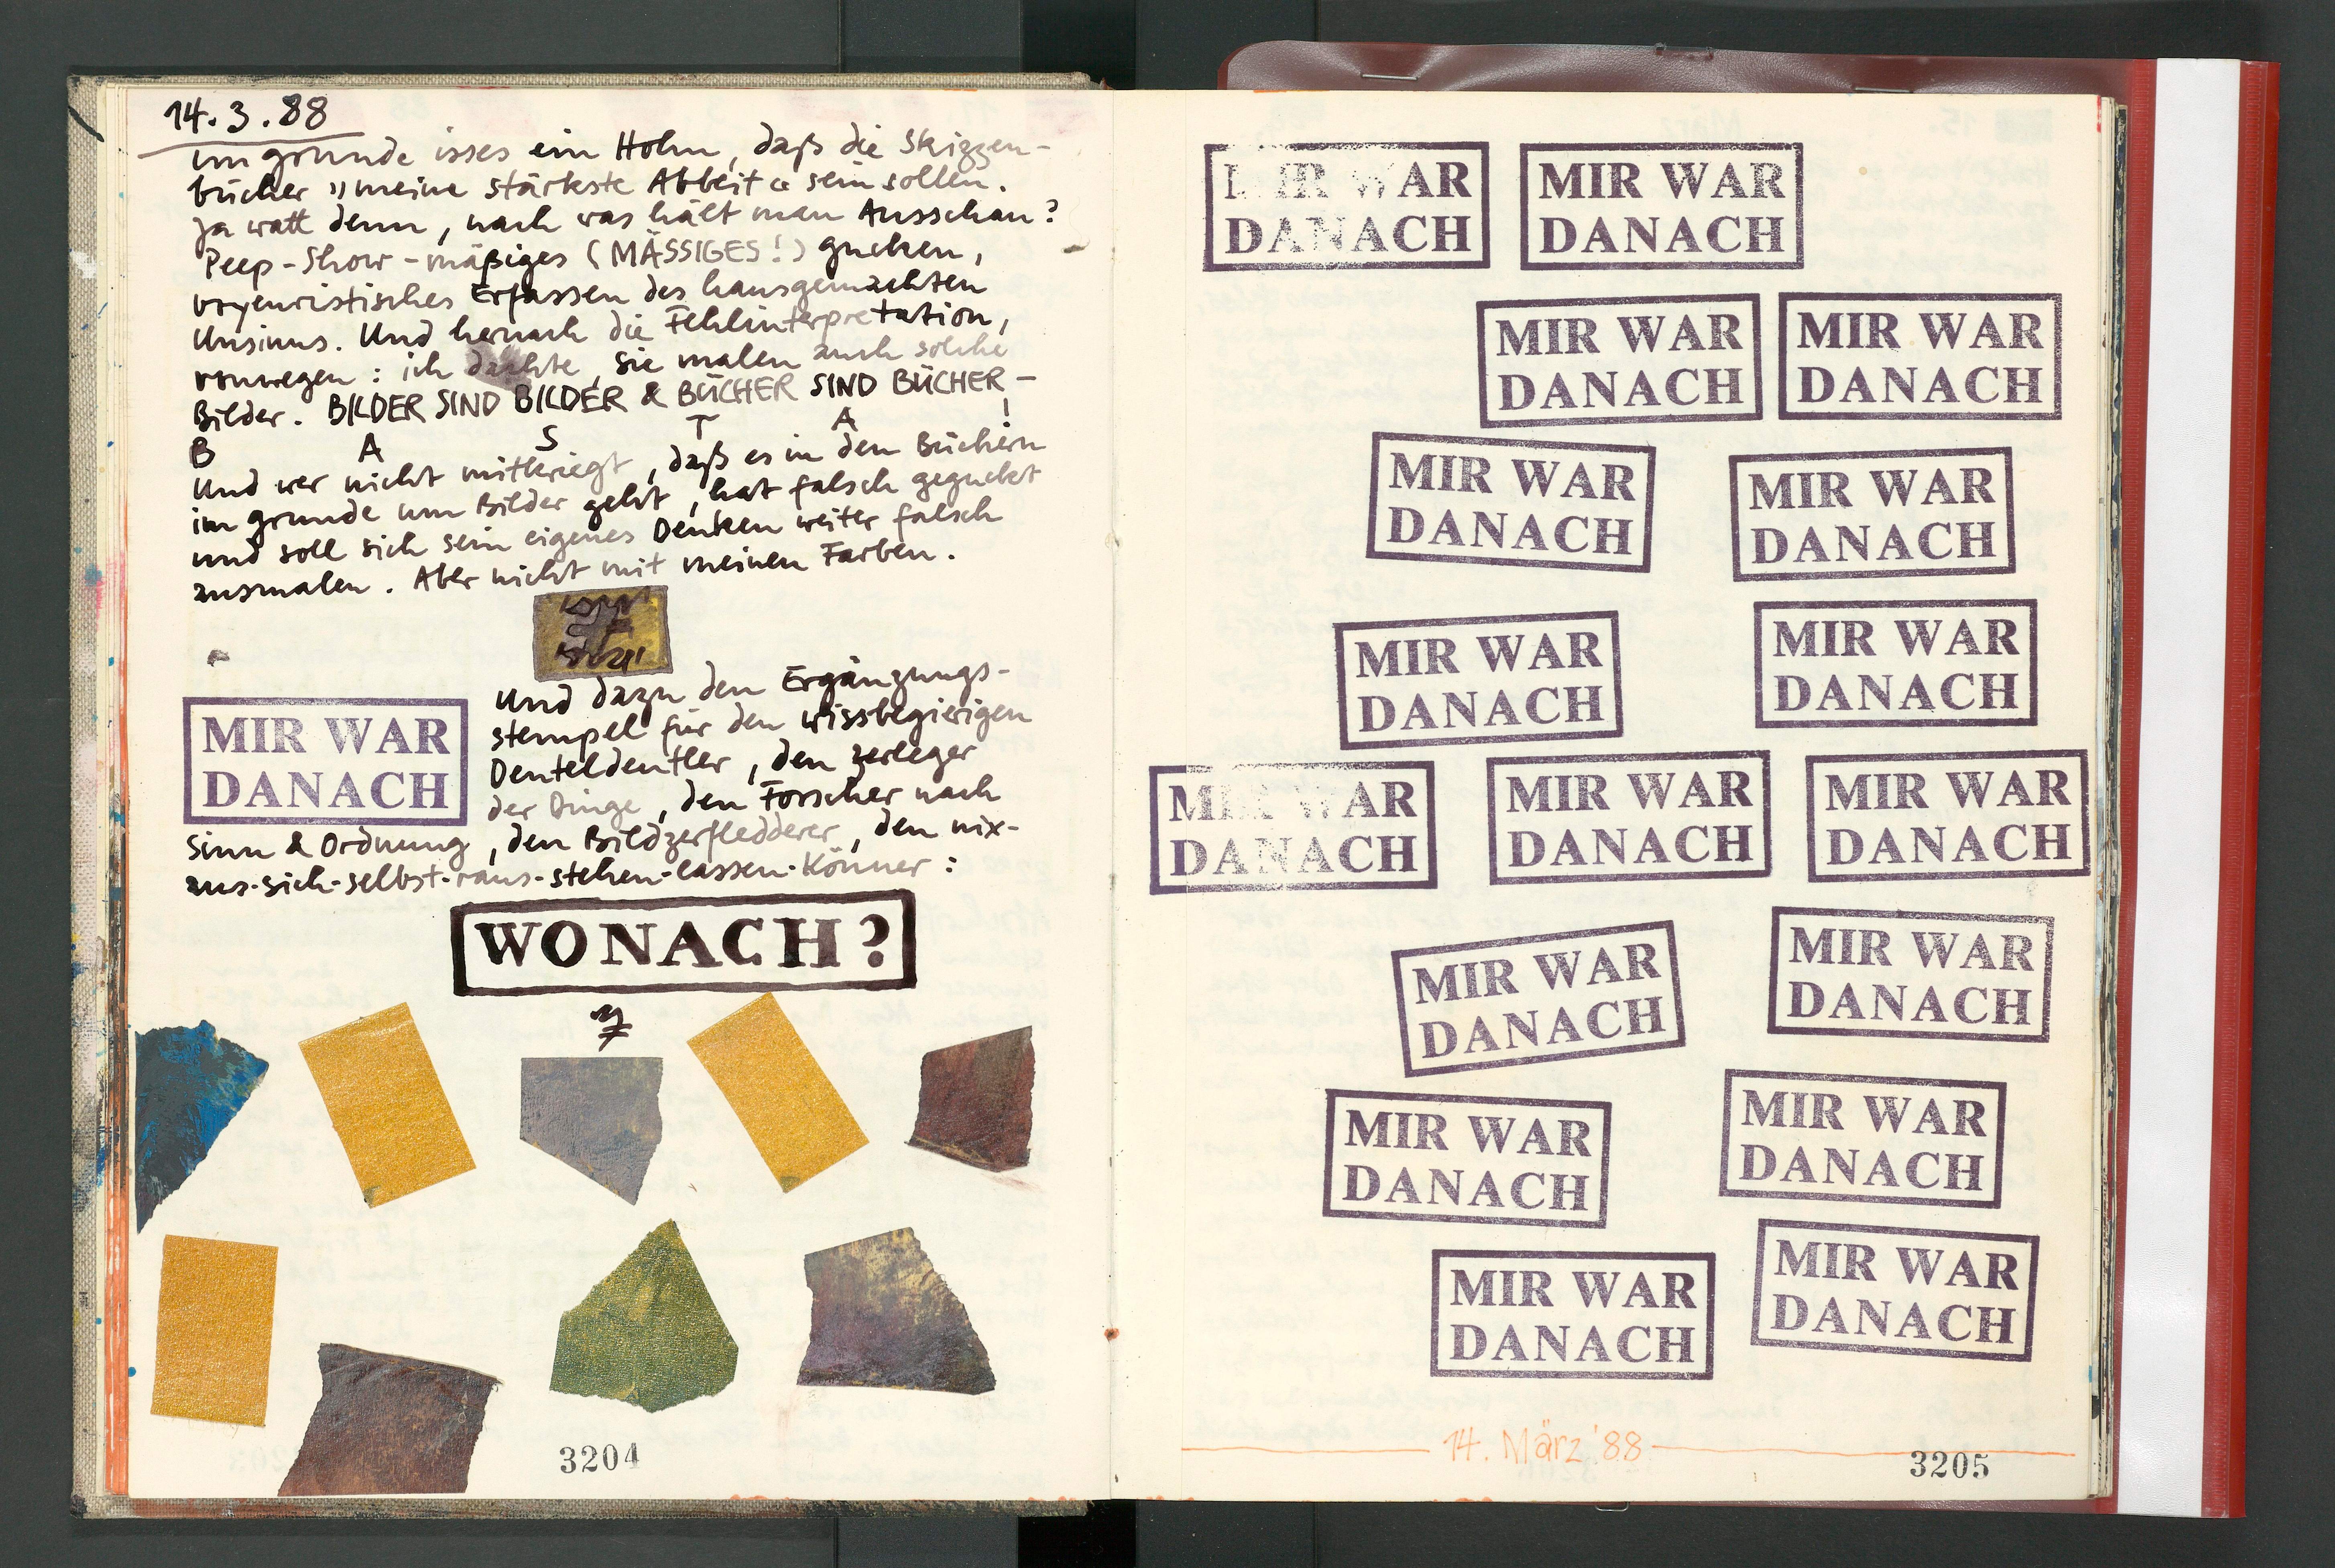 14.3.88
im grunde isses ein Hohn, daß die Skizzen-
bücher "meine stärkste Abbeit" sein sollen.
Ja watt denn, nach was hält man Ausschau?
Peep-Show-mäßiges (MÄSSIGES!) gucken,
voyeuristisches Erfassen des hausgemachten
Unsinns. Und hernach die Fehlinterpretation,
vonwegen: ich dachte, sie malen auch solche
Bilder. BILDER SIND BILDER & BÜCHER SIND BÜCHER –
B A S T A !
Und wer nicht mitkriegt, daß es in den Büchern
im grunde um Bilder geht, hat falsch geguckt
und soll sich sein eigenes Denken weiter falsch
ausmalen. Aber nicht mit meinen Farben.
Und dazu den Ergänzungs-
stempel für den wissbegierigen
Deuteldeutler, den zerleger
der Dinge, den Forscher nach
MIR WAR
DANACH
Sinn & Ordnung, den Bildzerfledderer, den nix-
aus-sich-selbst-raus-stehen-lassen-Könner:
WONACH?
3204
MIR WAR
DANACH
MIR WAR
DANACH
MIR WAR
DANACH
MIR WAR
DANACH
MIR WAR
DANACH
MIR WAR
DANACH
MIR WAR
DANACH
MIR WAR
DANACH
MIR WAR
DANACH
MIR WAR
DANACH
MIR WAR
DANACH
MIR WAR
DANACH
MIR WAR
DANACH
MIR WAR
DANACH
MIR WAR
DANACH
MIR WAR
DANACH
MIR WAR
DANACH
14. März '88
3205